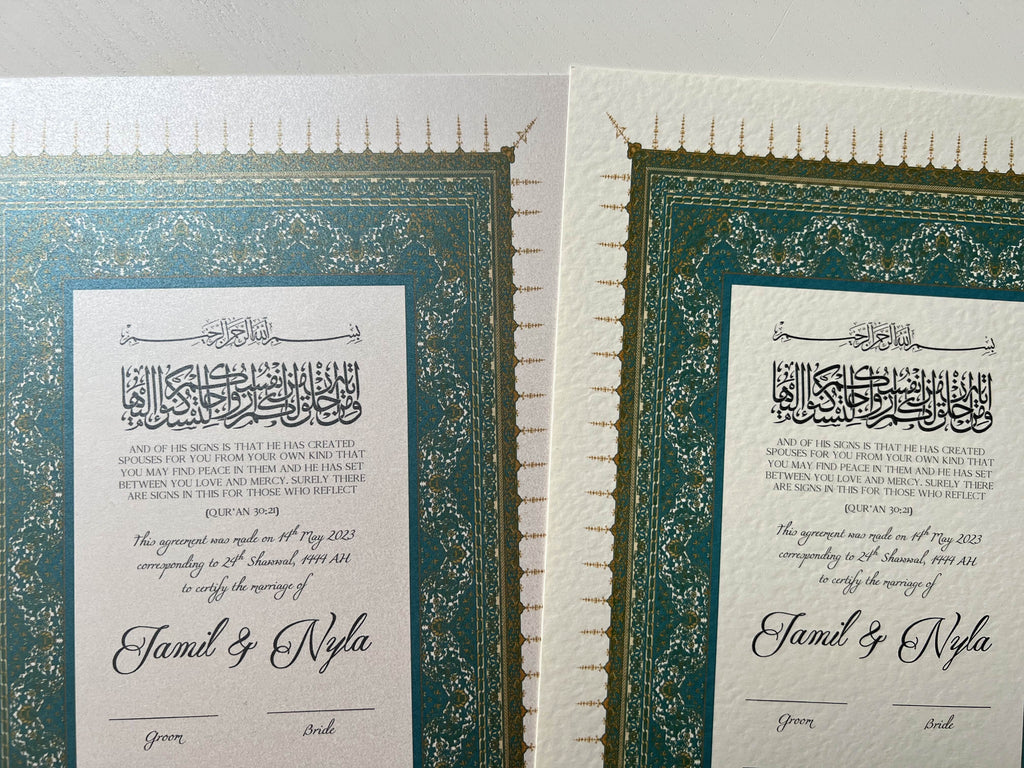 بسم الله الرحمن الرحيم
ومن آياته أن خلق لكم من أنفسكم أزواجا لتسكنوا إليها
AND OF HIS SIGNS IS THAT HE HAS CREATED
SPOUSES FOR YOU FROM YOUR OWN KIND THAT
YOU MAY FIND PEACE IN THEM AND HE HAS SET
BETWEEN YOU LOVE AND MERCY. SURELY THERE
ARE SIGNS IN THIS FOR THOSE WHO REFLECT
(QUR'AN 30:21)
This agreement was made on 14th May 2023
corresponding to 24th Shawwal, 1444 AH
to certify the marriage of
Jamil & Nyla
Groom Bride
بسم الله الرحمن الرحيم
ومن آياته أن خلق لكم من أنفسكم أزواجا لتسكنوا إليها
AND OF HIS SIGNS IS THAT HE HAS CREATED
SPOUSES FOR YOU FROM YOUR OWN KIND THAT
YOU MAY FIND PEACE IN THEM AND HE HAS SET
BETWEEN YOU LOVE AND MERCY. SURELY THERE
ARE SIGNS IN THIS FOR THOSE WHO REFLECT
(QUR'AN 30:21)
This agreement was made on 14th May 2023
corresponding to 24th Shawwal, 1444 AH
to certify the marriage of
Jamil & Nyla
Groom Bride